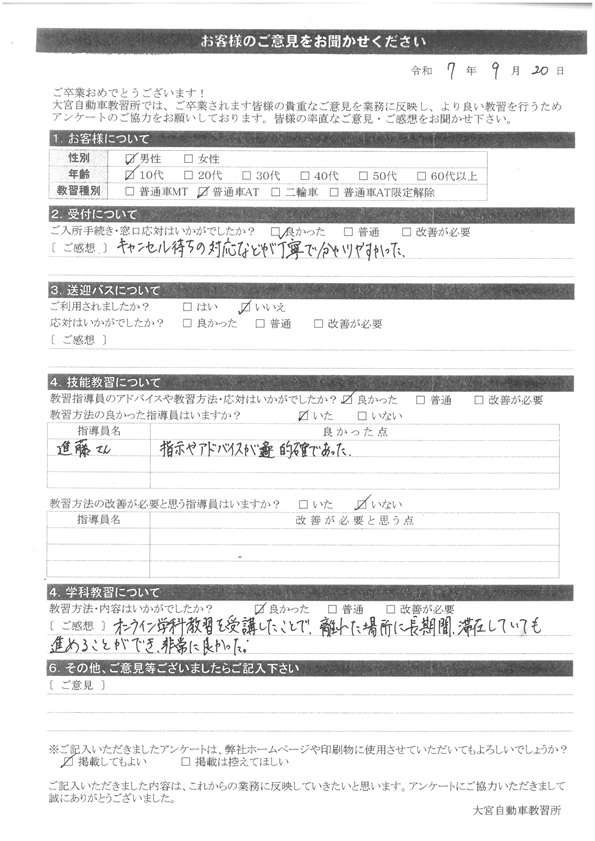 お客様のご意見をお聞かせください
令和 7 年 9 月 20 日
ご卒業おめでとうございます！
大宮自動車教習所では、ご卒業されます皆様の貴重なご意見を業務に反映し、より良い教習を行うため
アンケートのご協力をお願いしております。皆様の率直なご意見・ご感想をお聞かせ下さい。
1. お客様について
性別 ☑男性 □女性
年齢 ☑10代 □20代 □30代 □40代 □50代 □60代以上
教習種別 □普通車MT ☑普通車AT □二輪車 □普通車AT限定解除
2. 受付について
ご入所手続き・窓口応対はいかがでしたか？ ☑良かった □普通 □改善が必要
［ ご感想 ］ キャンセル待ちの対応などが丁寧で分かりやすかった。
3. 送迎バスについて
ご利用されましたか？ □はい ☑いいえ
応対はいかがでしたか？ □良かった □普通 □改善が必要
［ ご感想 ］
4. 技能教習について
教習指導員のアドバイスや教習方法・応対はいかがでしたか？ ☑良かった □普通 □改善が必要
教習方法の良かった指導員はいますか？ ☑いた □いない
指導員名 良かった点
進藤さん 指示やアドバイスが 的確であった。
教習方法の改善が必要と思う指導員はいますか？ □いた ☑いない
指導員名 改善が必要と思う点
4. 学科教習について
教習方法・内容はいかがでしたか？ ☑良かった □普通 □改善が必要
［ ご感想 ］ オンライン学科教習を受講したことで、離れた場所に長期間、滞在していても
進めることができ、非常に良かった。
6. その他、ご意見等ございましたらご記入下さい
［ ご意見 ］
※ご記入いただきましたアンケートは、弊社ホームページや印刷物に使用させていただいてもよろしいでしょうか？
☑掲載してもよい □掲載は控えてほしい
ご記入いただきました内容は、これからの業務に反映していきたいと思います。アンケートにご協力いただきまして
誠にありがとうございました。
大宮自動車教習所